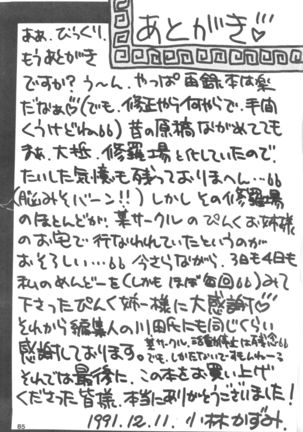 あとがき♡
まぁ、びっくり、
もうあとがき
ですか？う～ん、やっぱ再録本は楽
だなぁ♡(でも、修正やら何やらで、手間
くうけどね。。)昔の原稿ながめてても
まぁ、大抵、修羅場と化していたので、
たいした記憶も残っておりまへん…。。
(脳みそパーン!!)しかしその修羅場
のほとんどが、某サークルのぴんくお姉様
のお宅で行なわれていたというのが
おそろしい…。。今さらながら、3日も4日も
私のめんどーを(しかもほぼ毎回。。)みて
下さったぴんく姉一様に大感謝♡
それから編集人の川田氏にも同じくらい
感謝しております。某サークル、活動停止は残念。。
でも、しかたないですもんねーる
それでは最後に、この本をお買い上げ
くださった皆様、本当にありがとうございました！
1991.12.11. 小林かずみ.
85